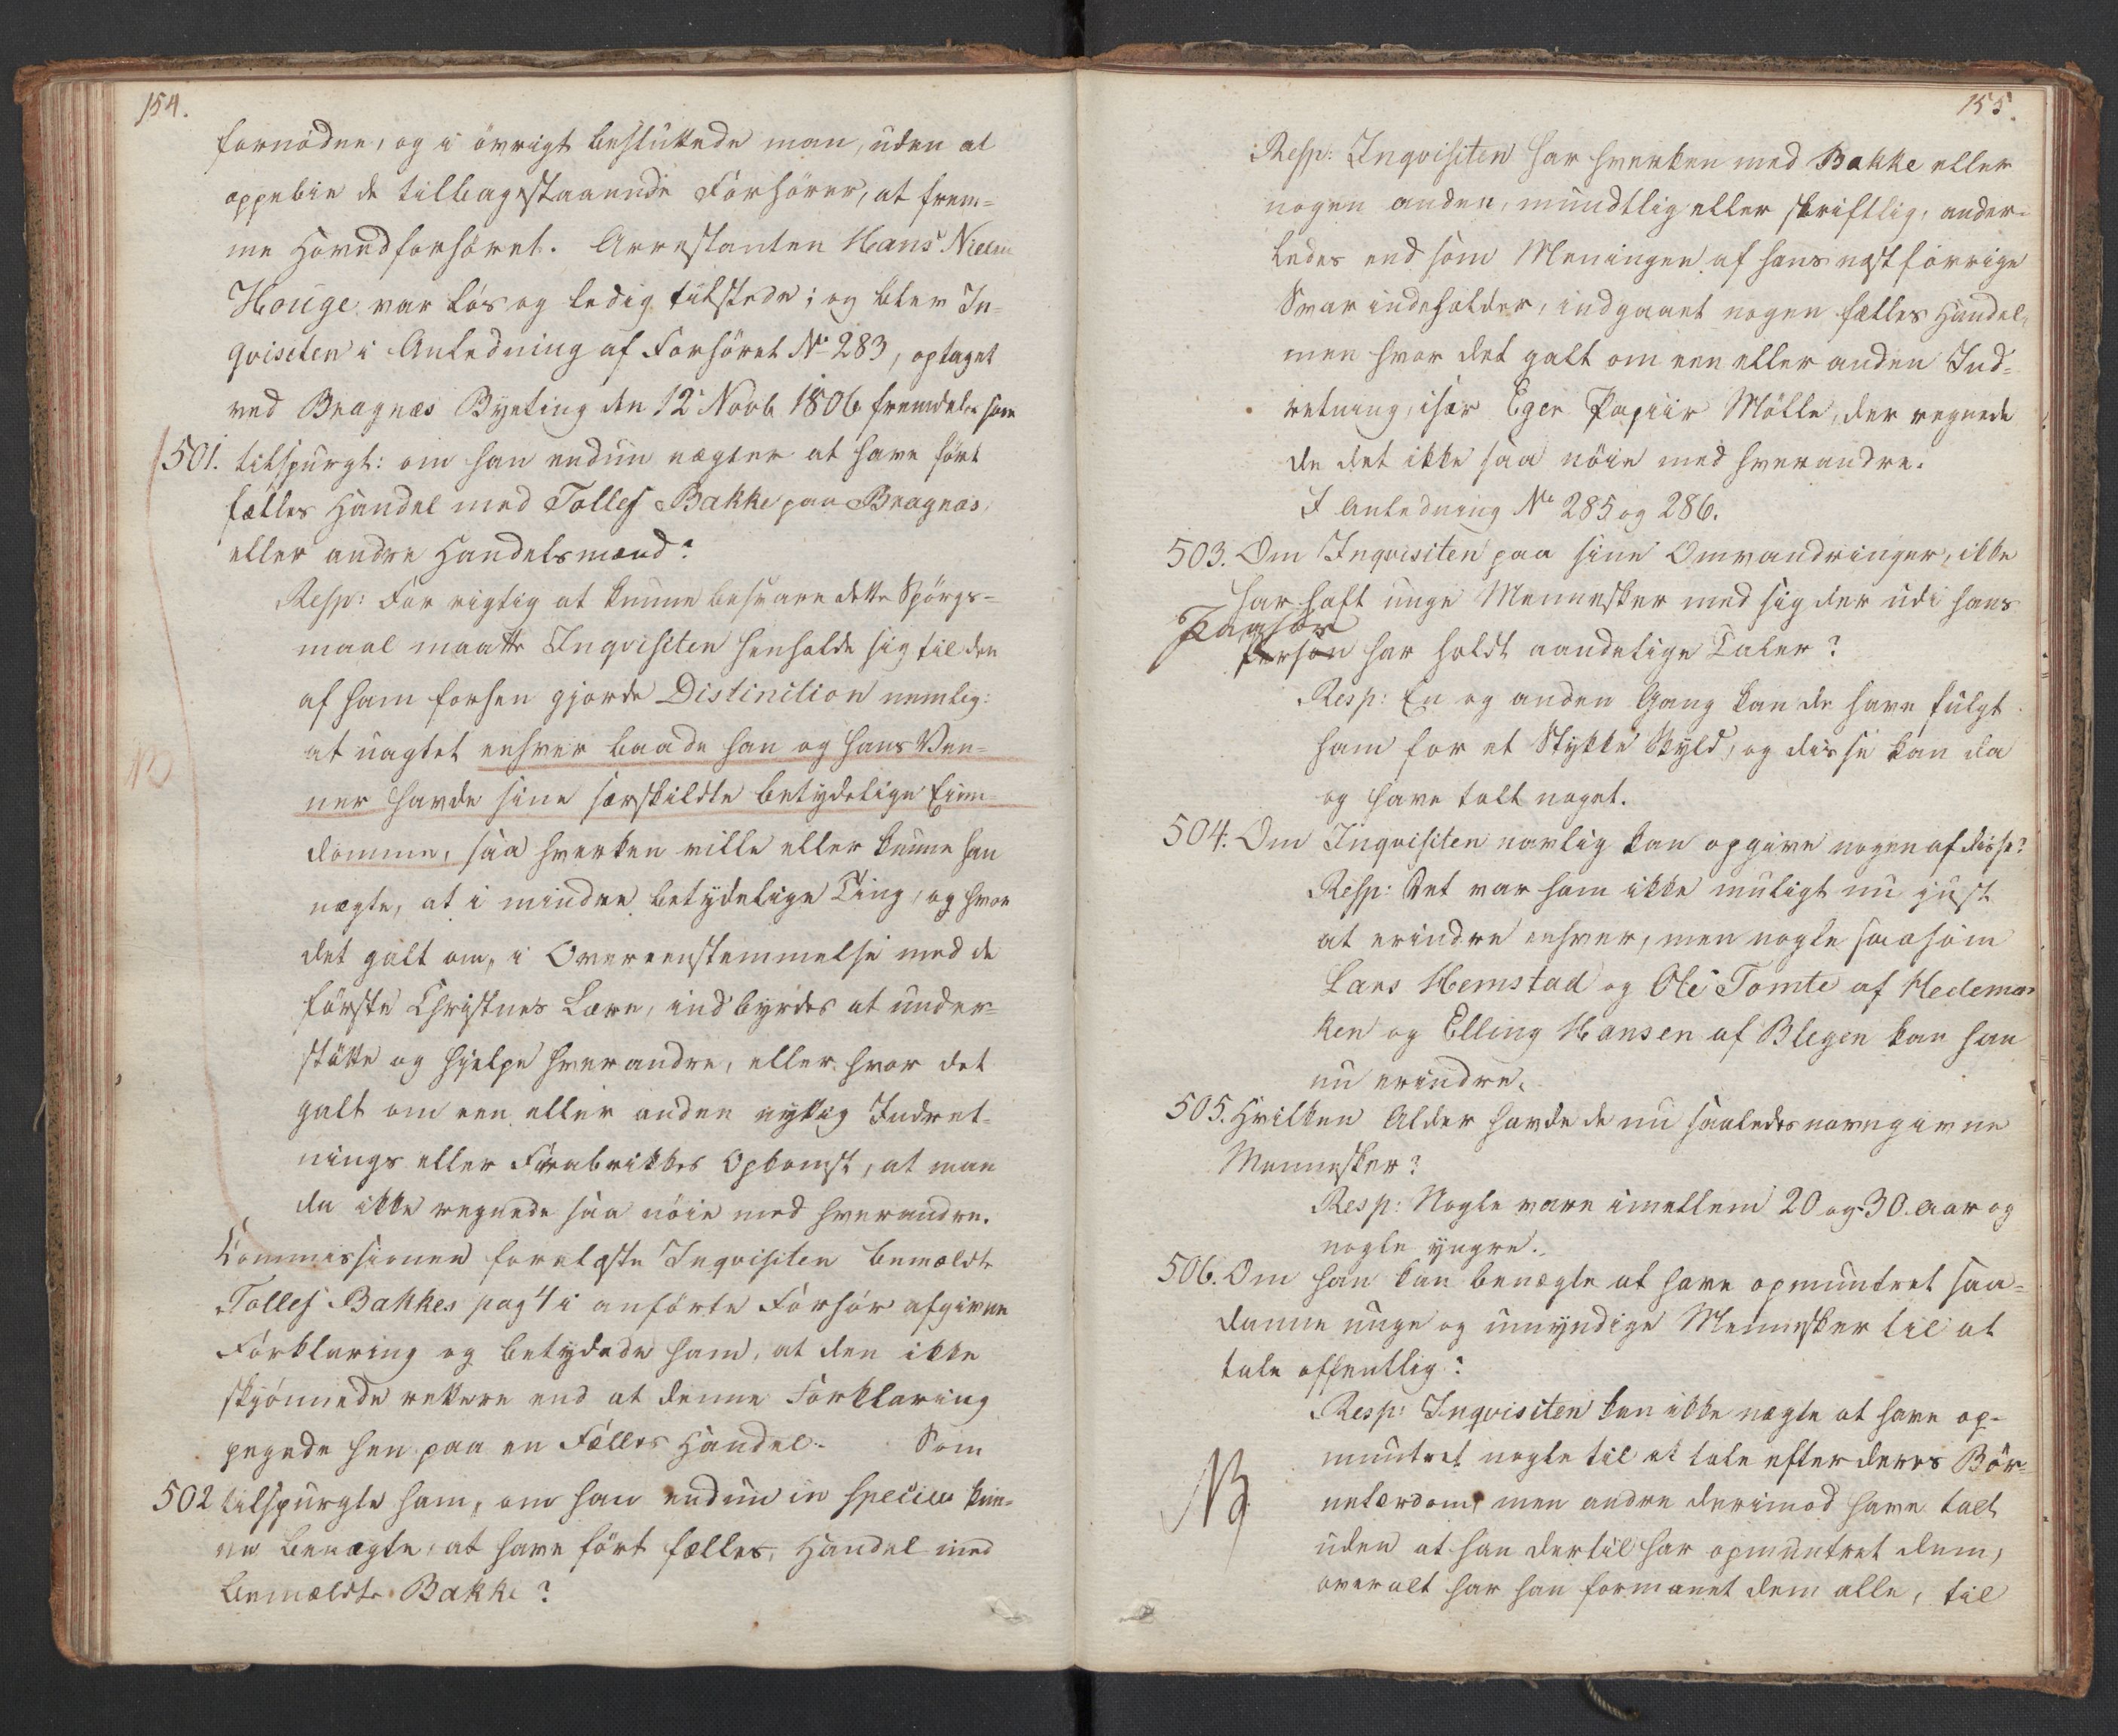 154.
fornødne, og i övrigt besluttede man, uden at
oppebie de tilbagestaaende Forhörer, at frem=
me Hovedforhöret. Arrestanten Hans Nielsen
Houge var lös og ledig tilstede; og blev In=
qvisiten i Anledning af Forhöret No 283, optaget
ved Bragnæs Byeting den 12 Novb. 1806 fremdeles som
501. tilspurgt: om han endnu nægter at have fört
fælles Handel med Tollef Bakke paa Bragnæs,
eller andre Handelsmænd?
Resp: For rigtig at kunne besvare dette Spörgs=
maal maatte Inqvisiten henholde sig til den
af ham forhen gjorde Distinction nemlig:
at uagtet enhver baade han og hans Ven=
NB
ner havde sine særskildte betydelige Eien=
domme, saa hverken ville eller kunne han
nægte, at i mindre betydelige Ting, og hvor
det galt om, i Overeenstemmelse med de
förste Christnes Lære, indbyrdes at under=
stötte og hjelpe hverandre, eller hvor det
galt om een eller anden nyttig Indret=
nings eller Fabrikkes Opkomst, at man
da ikke regnede saa nöie med hverandre.
Commissionen forelæste Inqvisiten bemældte
Tollef Bakkes pag 4 i anförte Forhör afgivne
Forklaring og betydede ham, at den ikke
skjönnede rettere end at denne Forklaring
pegede hen paa en Fælles Handel. Som
502 tilspurgte ham, om han endnu in specie kun=
ne benægte, at have fört fælles Handel med
bemældte Bakke?
155.
Resp: Inqvisiten har hverken med Bakke eller
nogen anden, mundtlig eller skriftlig, ander=
ledes end som Meningen af hans næst forrige
Svar indeholder, indgaaet nogen fælles Handel,
men hvor det galt om een eller anden Ind=
retning, især Eger Papiir Mölle, der regnede
de det ikke saa nöie med hverandre.
I Anledning No 285 og 286.
503. Om Inqvisiten paa sine Omvandringer, ikke
har haft unge Mennesker med sig der udi hans
Paahör
person har holdt aandelige Taler?
Resp: En og anden Gang kan de have fulgt
ham for et Stykke Skyld, og disse kan da
og have talt noget.
504. Om Inqvisiten navnlig kan opgive nogen af disse?
Resp: Det var ham ikke muligt nu just
at erindre enhver, men nogle saasom
Lars Hemstad og Ole Tomte af Hedemar
ken og Elling Hansen af Blegen kan han
nu erindre.
505. Hvilken Alder havde de nu saaledes navngivne
Mennesker?
Resp: Nogle vare imellem 20 og 30. aar og
nogle yngre.
506. Om han kan benægte at have opmuntret saa=
danne unge og umyndige Mennesker til at
tale offentlig?
Resp: Inqvisiten kan ikke nægte at have op=
NB
muntret nogle til at tale efter deres Bör=
nelærdom, men andre derimod have talt
uden at han dertil har opmuntret dem,
overalt har han formanet dem alle, til